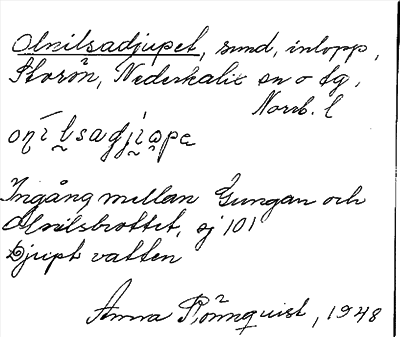 Olnilsadjupet, sund, inlopp,
Storön, Nederkalix sn o tg,
Norrb. l
Ingång mellan Gungan och
Olnilsbrottet, ej 101
Djupt vatten
Anna Rönnquist, 1948